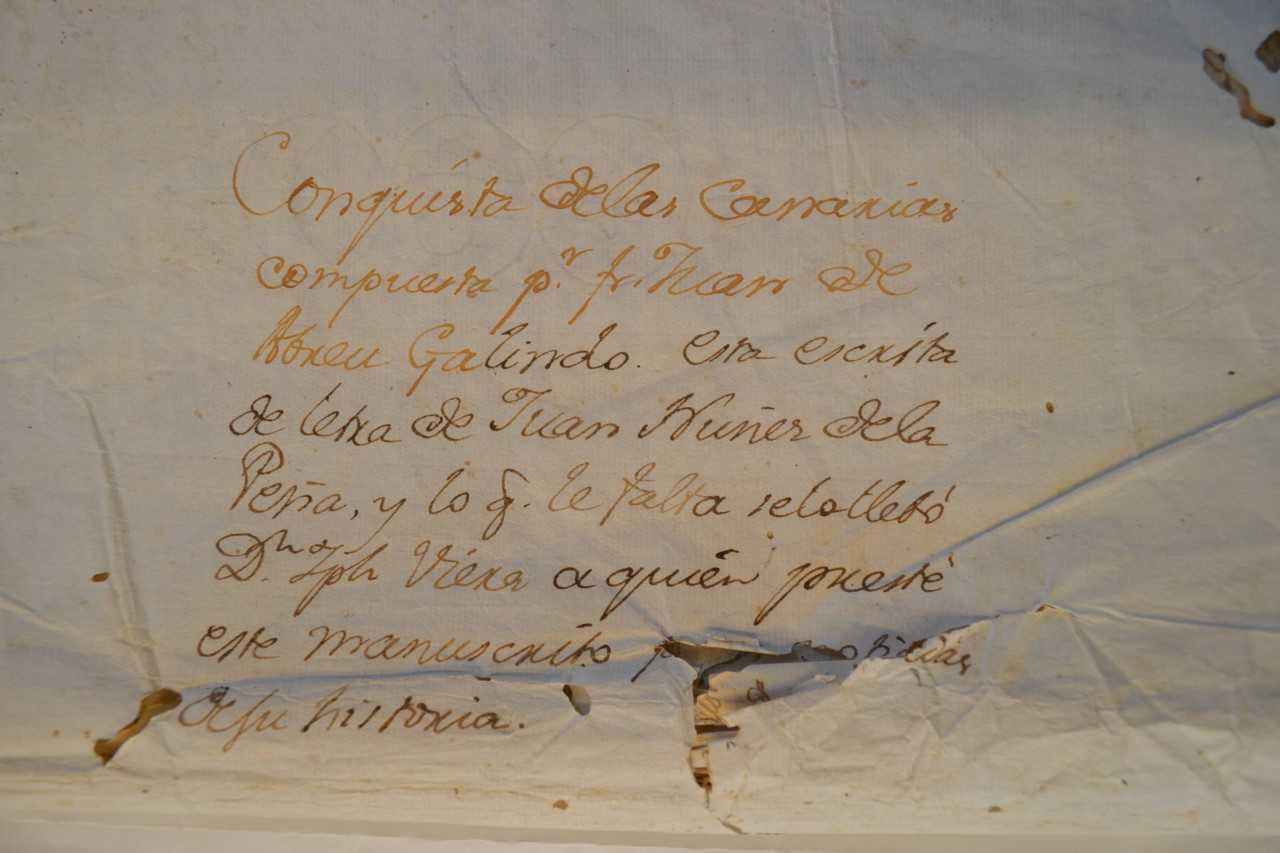 Conquista delas Canarias
compuesta pr. fr. Juan de
Abreu Galindo. esta escrita
de letra de Juan Nuñez dela
Peña, y lo q̃. le falta selollebó
Dn. Jph Viera aquien presté
este manuscrito noticias
desu historia.